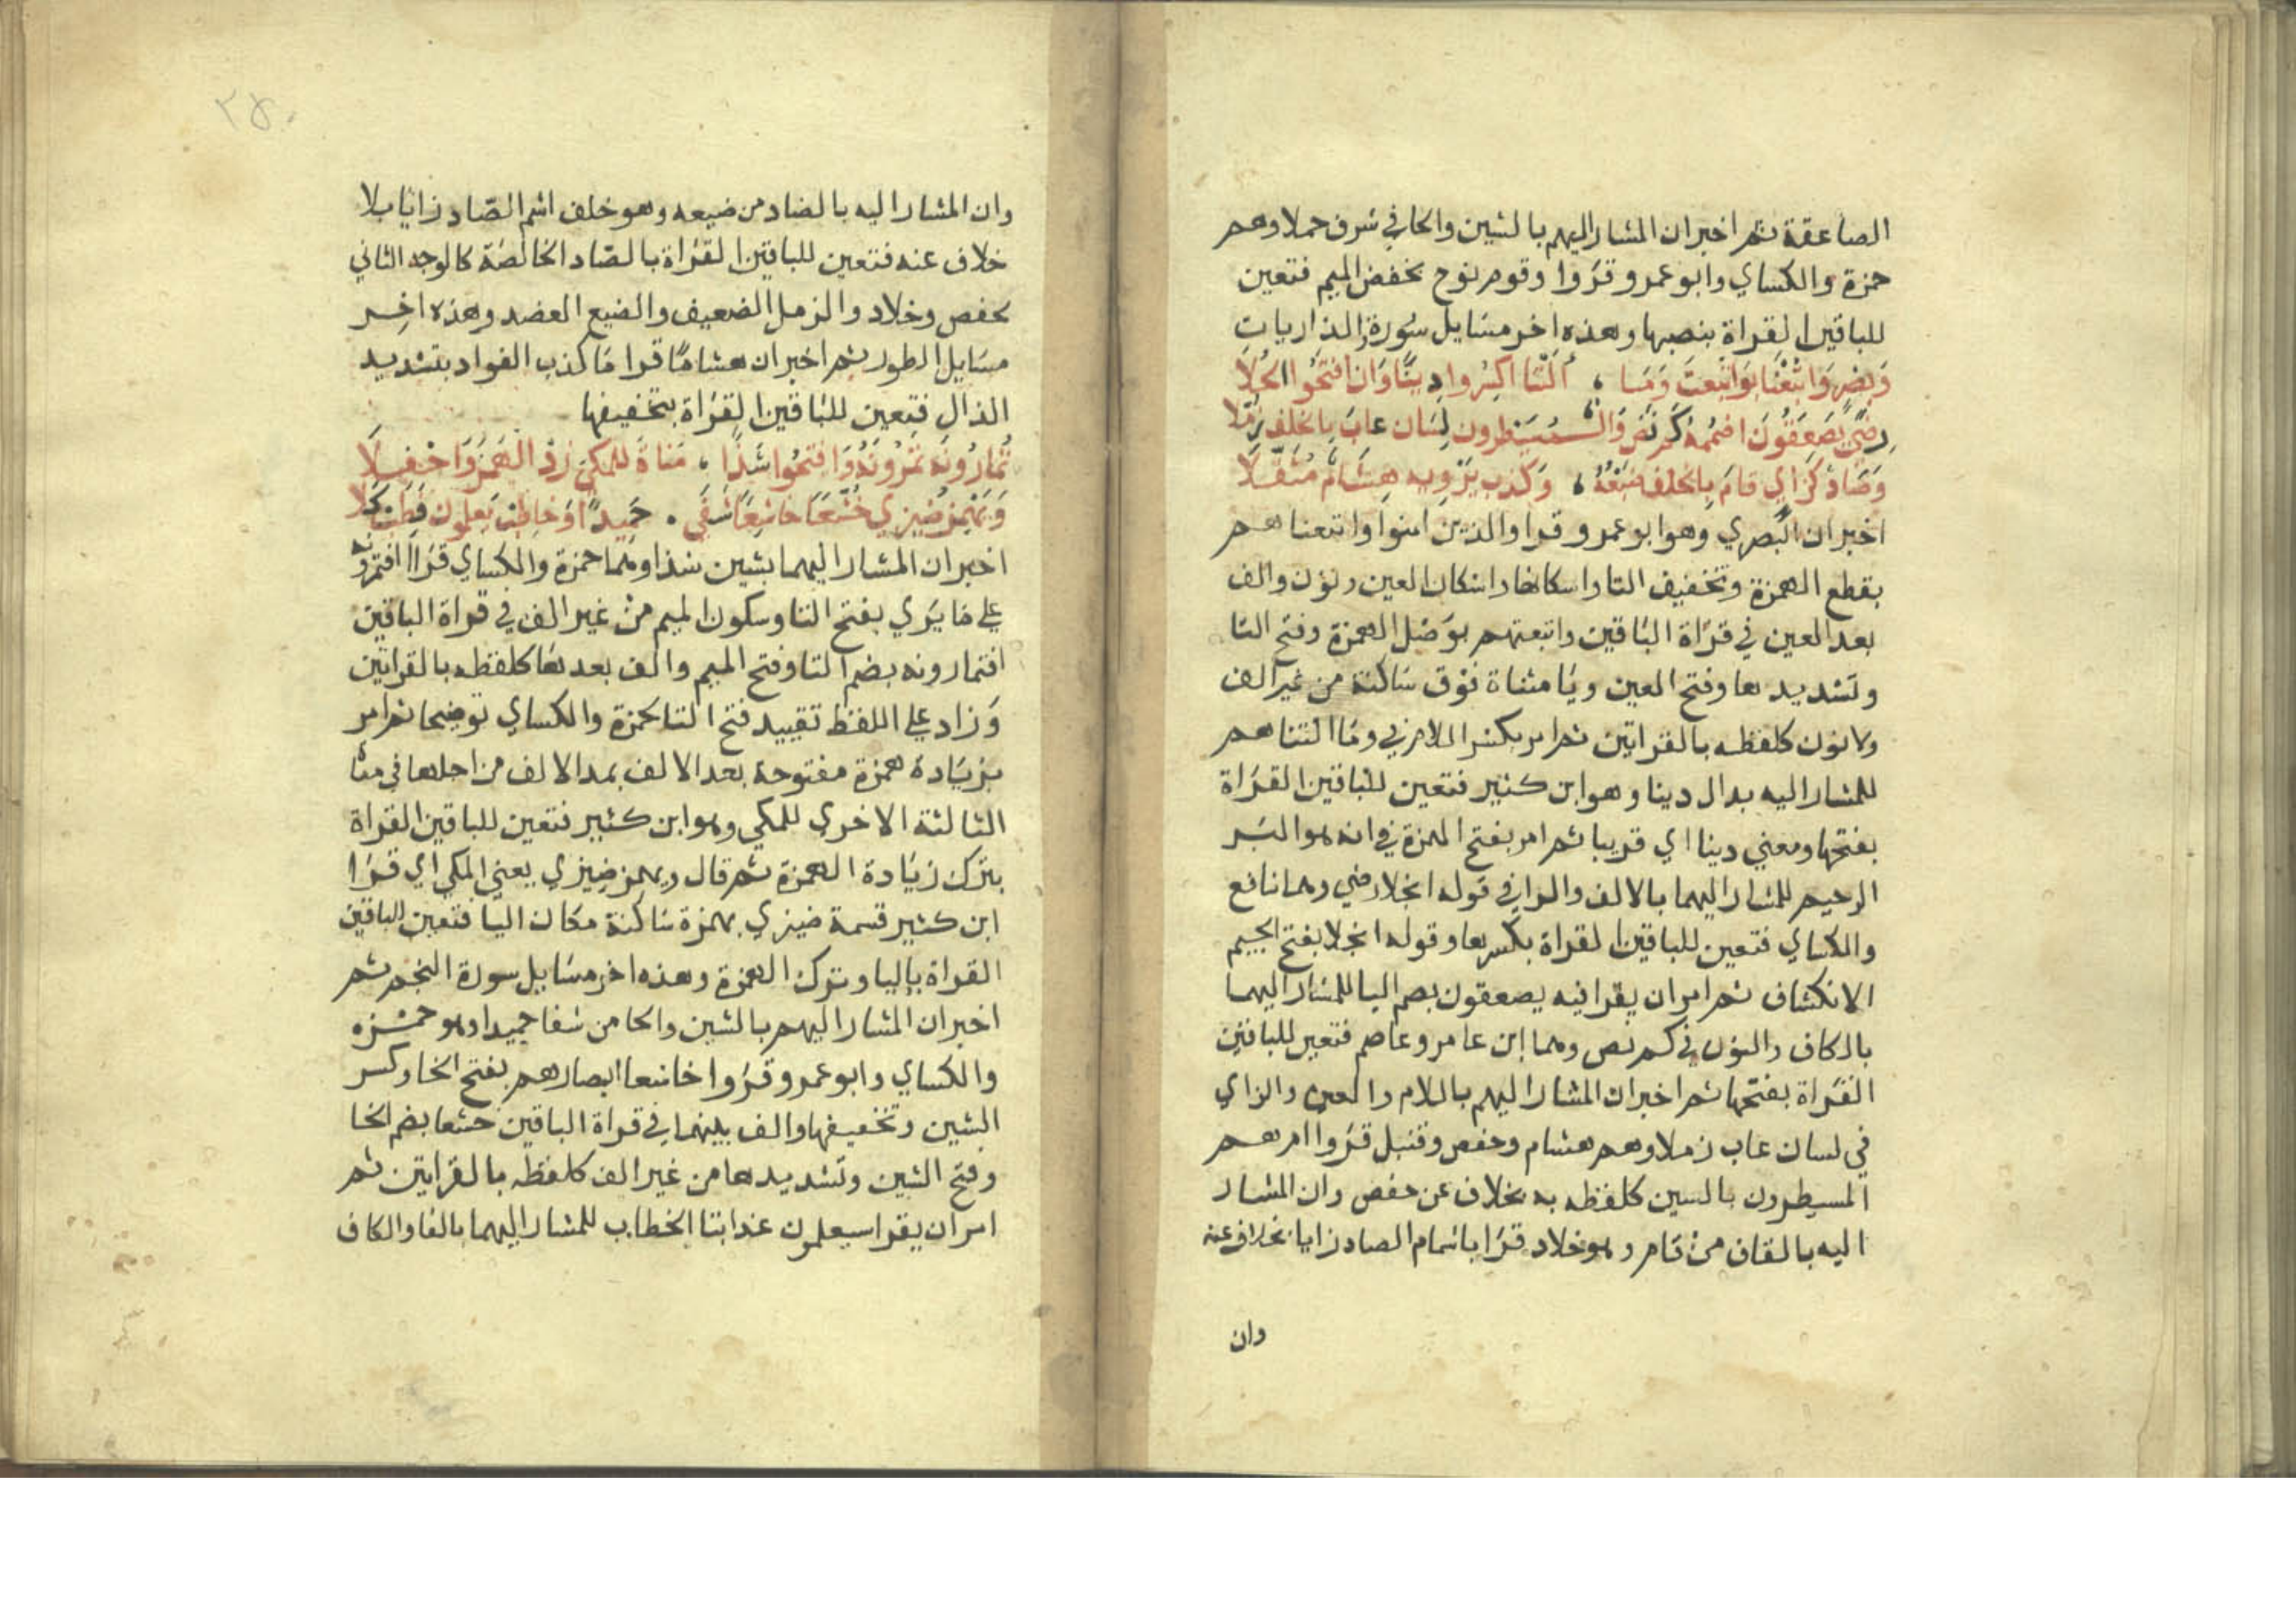 الصاعقة ثم اخبر ان المشار اليهم بالشين والحا في شرف حملا وهم
حمزة والكساي وابو عمرو قرَوا وقوم نوح بخفض الميم فتعين
للباقين القراة بنصبها وهذه اخر مسايل سُورة والذاريات
وَبَصْرٍ وَاتْبَعْنَا بِوَاتَّبَعتْ وَمَا ، أَلَتْنَا اكسِرُوا دِينًا وَان افتَحُوا الجَلَا
رِضًى يَصعَقُونَ اضمُمهُ كَم نَص وَالمُسَيْطِرون لِسَان عابَ بِالخلفِ زُمَّلا
وَصَادٌ كَزَايٍ قامَ بِالخلفِ ضَبْعُهُ ، وَكَذبَ يَرْوِيهِ هِشَامٌ مُثَقَّلَا
اخبر ان البَصري وهو ابو عمرو قرا والذين امنوا واتبعناهم
بقطع الهمزة وتخفيف التا واسكانها واسكان العين ونون والف
بعد العين في قرَاة البَاقين واتبعتهم بوَصْل الهمزة وفتح التا
وتشديدها وفتح العين ويَا مثناة فوق سَاكنة من غير الف
ولا نون كلفظه بالقراتين ثم امر بكسر اللام في ومَا التناهم
للمشار اليه بدال دينا وهو ابن كثير فتعين للبَاقين القرَاة
بفتحها ومعني دينا اي قريبا ثم امر بفتح الهمزة في انه هو البَر
الرحيم للمشار اليهما بالالف والرا في قوله انجلا رضي وهما نافع
والكساي فتعين للباقين القراة بكسرها وقوله انجلا بفتح الجيم
الانكشاف ثم امر ان يقرا فيه يصعقون بضم اليا للمشار اليهما
بالكاف والنون في كم نص وهما ابن عامر وعاصم فتعين للباقين
القرَاة بفتحها ثم اخبر ان المشار اليهم باللام والعين والزاي
في لسان عاب زملا وهم هشام وحفص وقنبل قرَوا ام هم
المسيطرون بالسين كلفظه به بخلاف عن حفص وان المشار
اليه بالقاف من قام وهو خلاد قرَا باشمام الصاد زايا بخلاف عنه
وان
٢٨٠
وان المشار اليه بالضاد من ضبعه وهو خلف اشم الصّاد زايَا بلا
خلاف عنه فتعين للباقين القرَاة بالصّاد الخالصَة كالوجه الثاني
لحفص وخلاد والزمل الضعيف والضبع العضد وهذه اخر
مسَايل الطور ثم اخبر ان هشامًا قرا مَا كذب الفواد بتشديد
الذال فتعين للبَاقين القرَاة بتخفيفها
تُمَارُونَهُ تَمْرُونَهُ وَافتحُوا شَذًا ، مَناةَ للمكيّ زِدْ الهَمزَ وَاحْفِلَا
وَيَهْمِزُ ضِيزي خُشَّعًا خاشِعًا شَفَى ، حَمِيدًا وَخاطِب يَعلَمُونَ فَطِب كَلَا
اخبر ان المشار اليهما بشين شذا وهما حمزة والكساي قرَاا افتمرونه
علي مَا يَري بفتح التا وسكون الميم من غير الف في قراة الباقين
افتمارونه بضم التا وفتح الميم والف بعدهَا كلفظه بالقراتين
وَزاد علي اللفظ تقييد فتح التا لحمزة والكساي توضيحا ثم امر
بزيَادة همزة مفتوحة بعد الالف بمد الالف من اجلها في مناة
الثالثة الاخري للمكي وهو ابن كثير فتعين للباقين القراة
بترك زيَادة الهمزة ثم قال ويهمز ضيزي يعني المكي اي قرَا
ابن كثير قسمة ضيزي بهمزة سَاكنة مكان اليا فتعين للباقين
القراة باليا وترك الهمزة وهذه اخر مسَايل سورة النجم ثم
اخبر ان المشار اليهم بالشين والحا من شفا حميدا وهو حمزه
والكساي وابو عمرو قرَوا خاشعا ابصارهم بفتح الخا وكسر
الشين وتخفيفها والف بينهما في قراة الباقين خشعا بضم الخا
وفتح الشين وتشديدها من غير الف كلفظه بالقراتين ثم
امر ان يقرا سيعلمون غدا بتا الخطاب للمشار اليهما بالفا والكاف